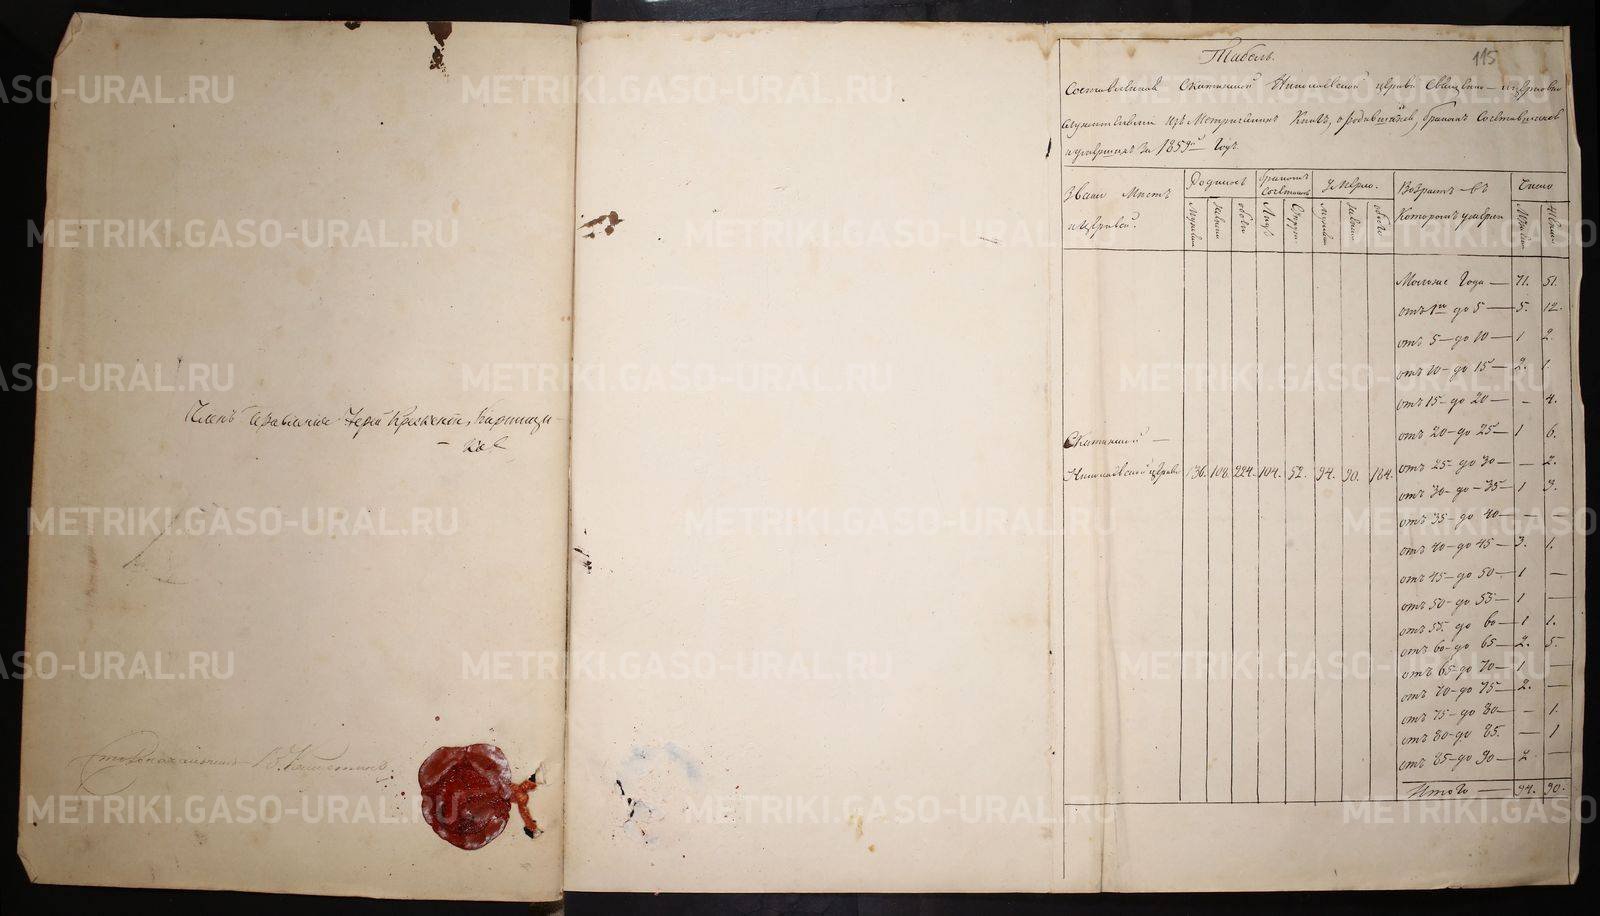 Членъ Правленія
115
Табель.
Составленная Скатинской Николаевской церкви Священно-церковно
служителями изъ Метрическихъ Книгъ, о родившихся, бракомъ Сочетавшихся
и умершихъ за 1859й Годъ.
Званіе Мѣстъ и церквей.
Родилось
Бракомъ сочеталось
Умерло.
Возрастъ въ которомъ умерли
Число
Мужск.
Женск.
обоего
Лицъ
Супр.
Мужск.
Женск.
обоего
Мужск.
Женск.
Скатинской
Николаевской церкви 136. 108. 224. 104. 52. 94. 90. 184.
Моложе Года — 71. 51.
отъ 1го до 5 — 5. 12.
отъ 5 — до 10 — 1 2.
отъ 10 — до 15 — 2. 1.
отъ 15 — до 20 — - 4.
отъ 20 — до 25 — 1 6.
отъ 25 — до 30 — - 2.
отъ 30 — до 35 — 1 3.
отъ 35 — до 40 — - -
отъ 40 — до 45 — 3. 1.
отъ 45 — до 50 — 1 —
отъ 50 — до 55 — 1 —
отъ 55. до 60 — 1 1.
отъ 60 — до 65 — 2. 5.
отъ 65 — до 70 — 1 —
отъ 70 — до 75 — 2. —
отъ 75 — до 80 — - 1.
отъ 80 — до 85. — 1
отъ 85 — до 90 — 2 -
Итого — 94. 90.
METRIKI.GASO-URAL.RU